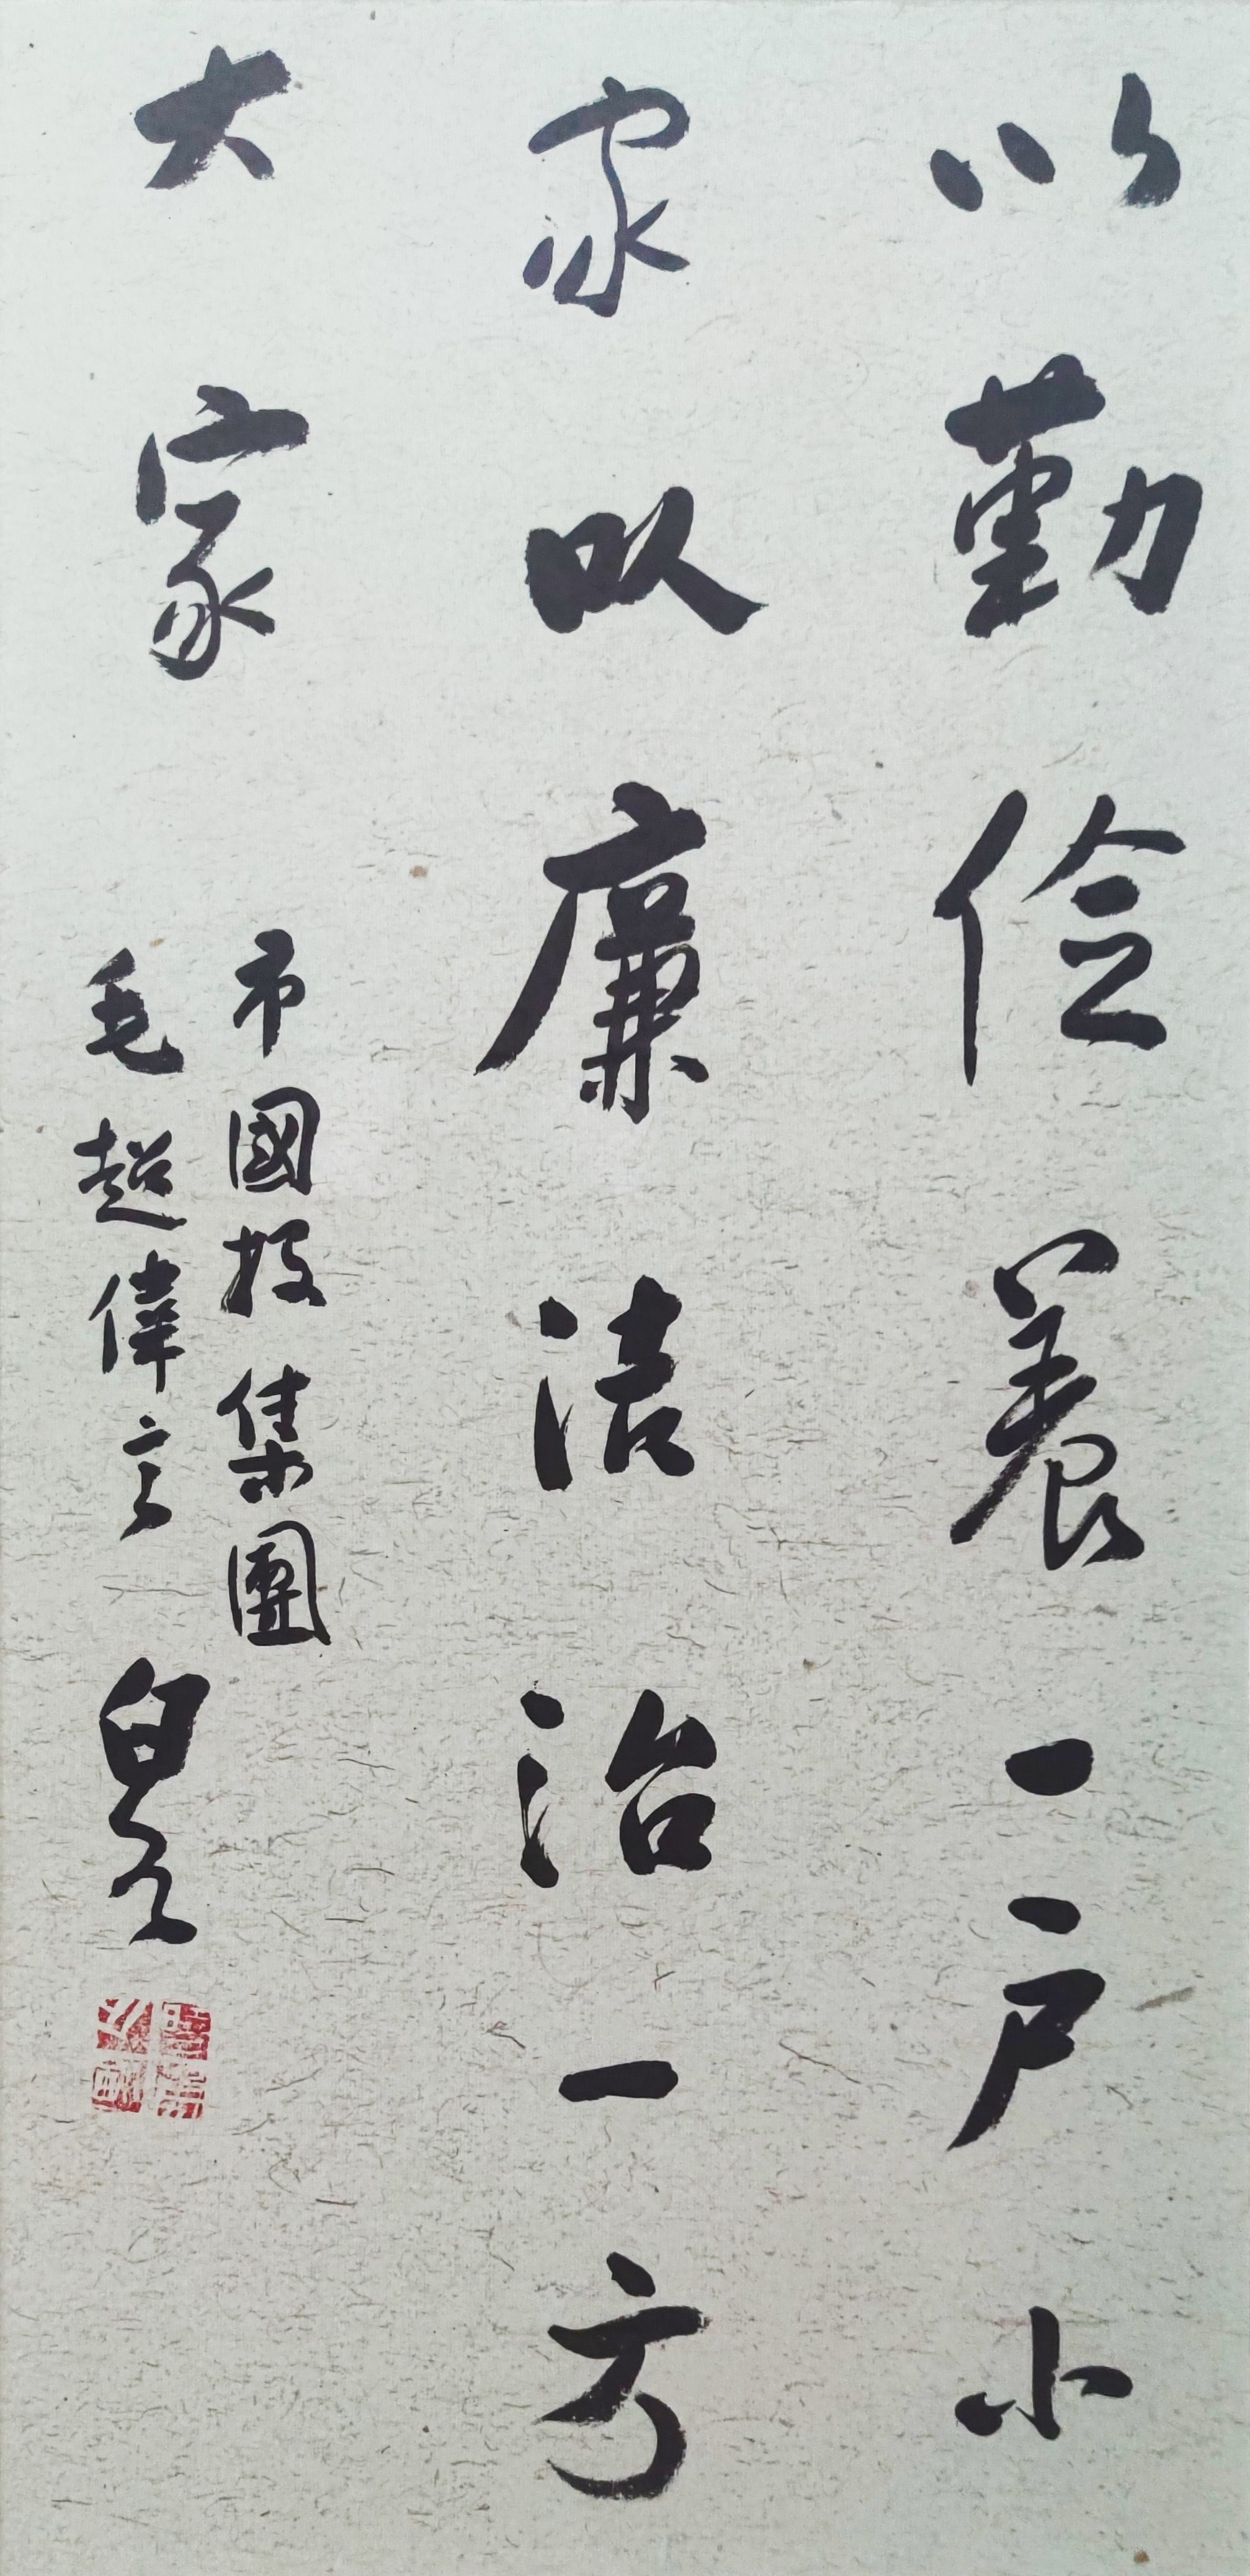 以勤俭养一户小
家以廉洁治一方
大家
市國投集團
毛超偉言